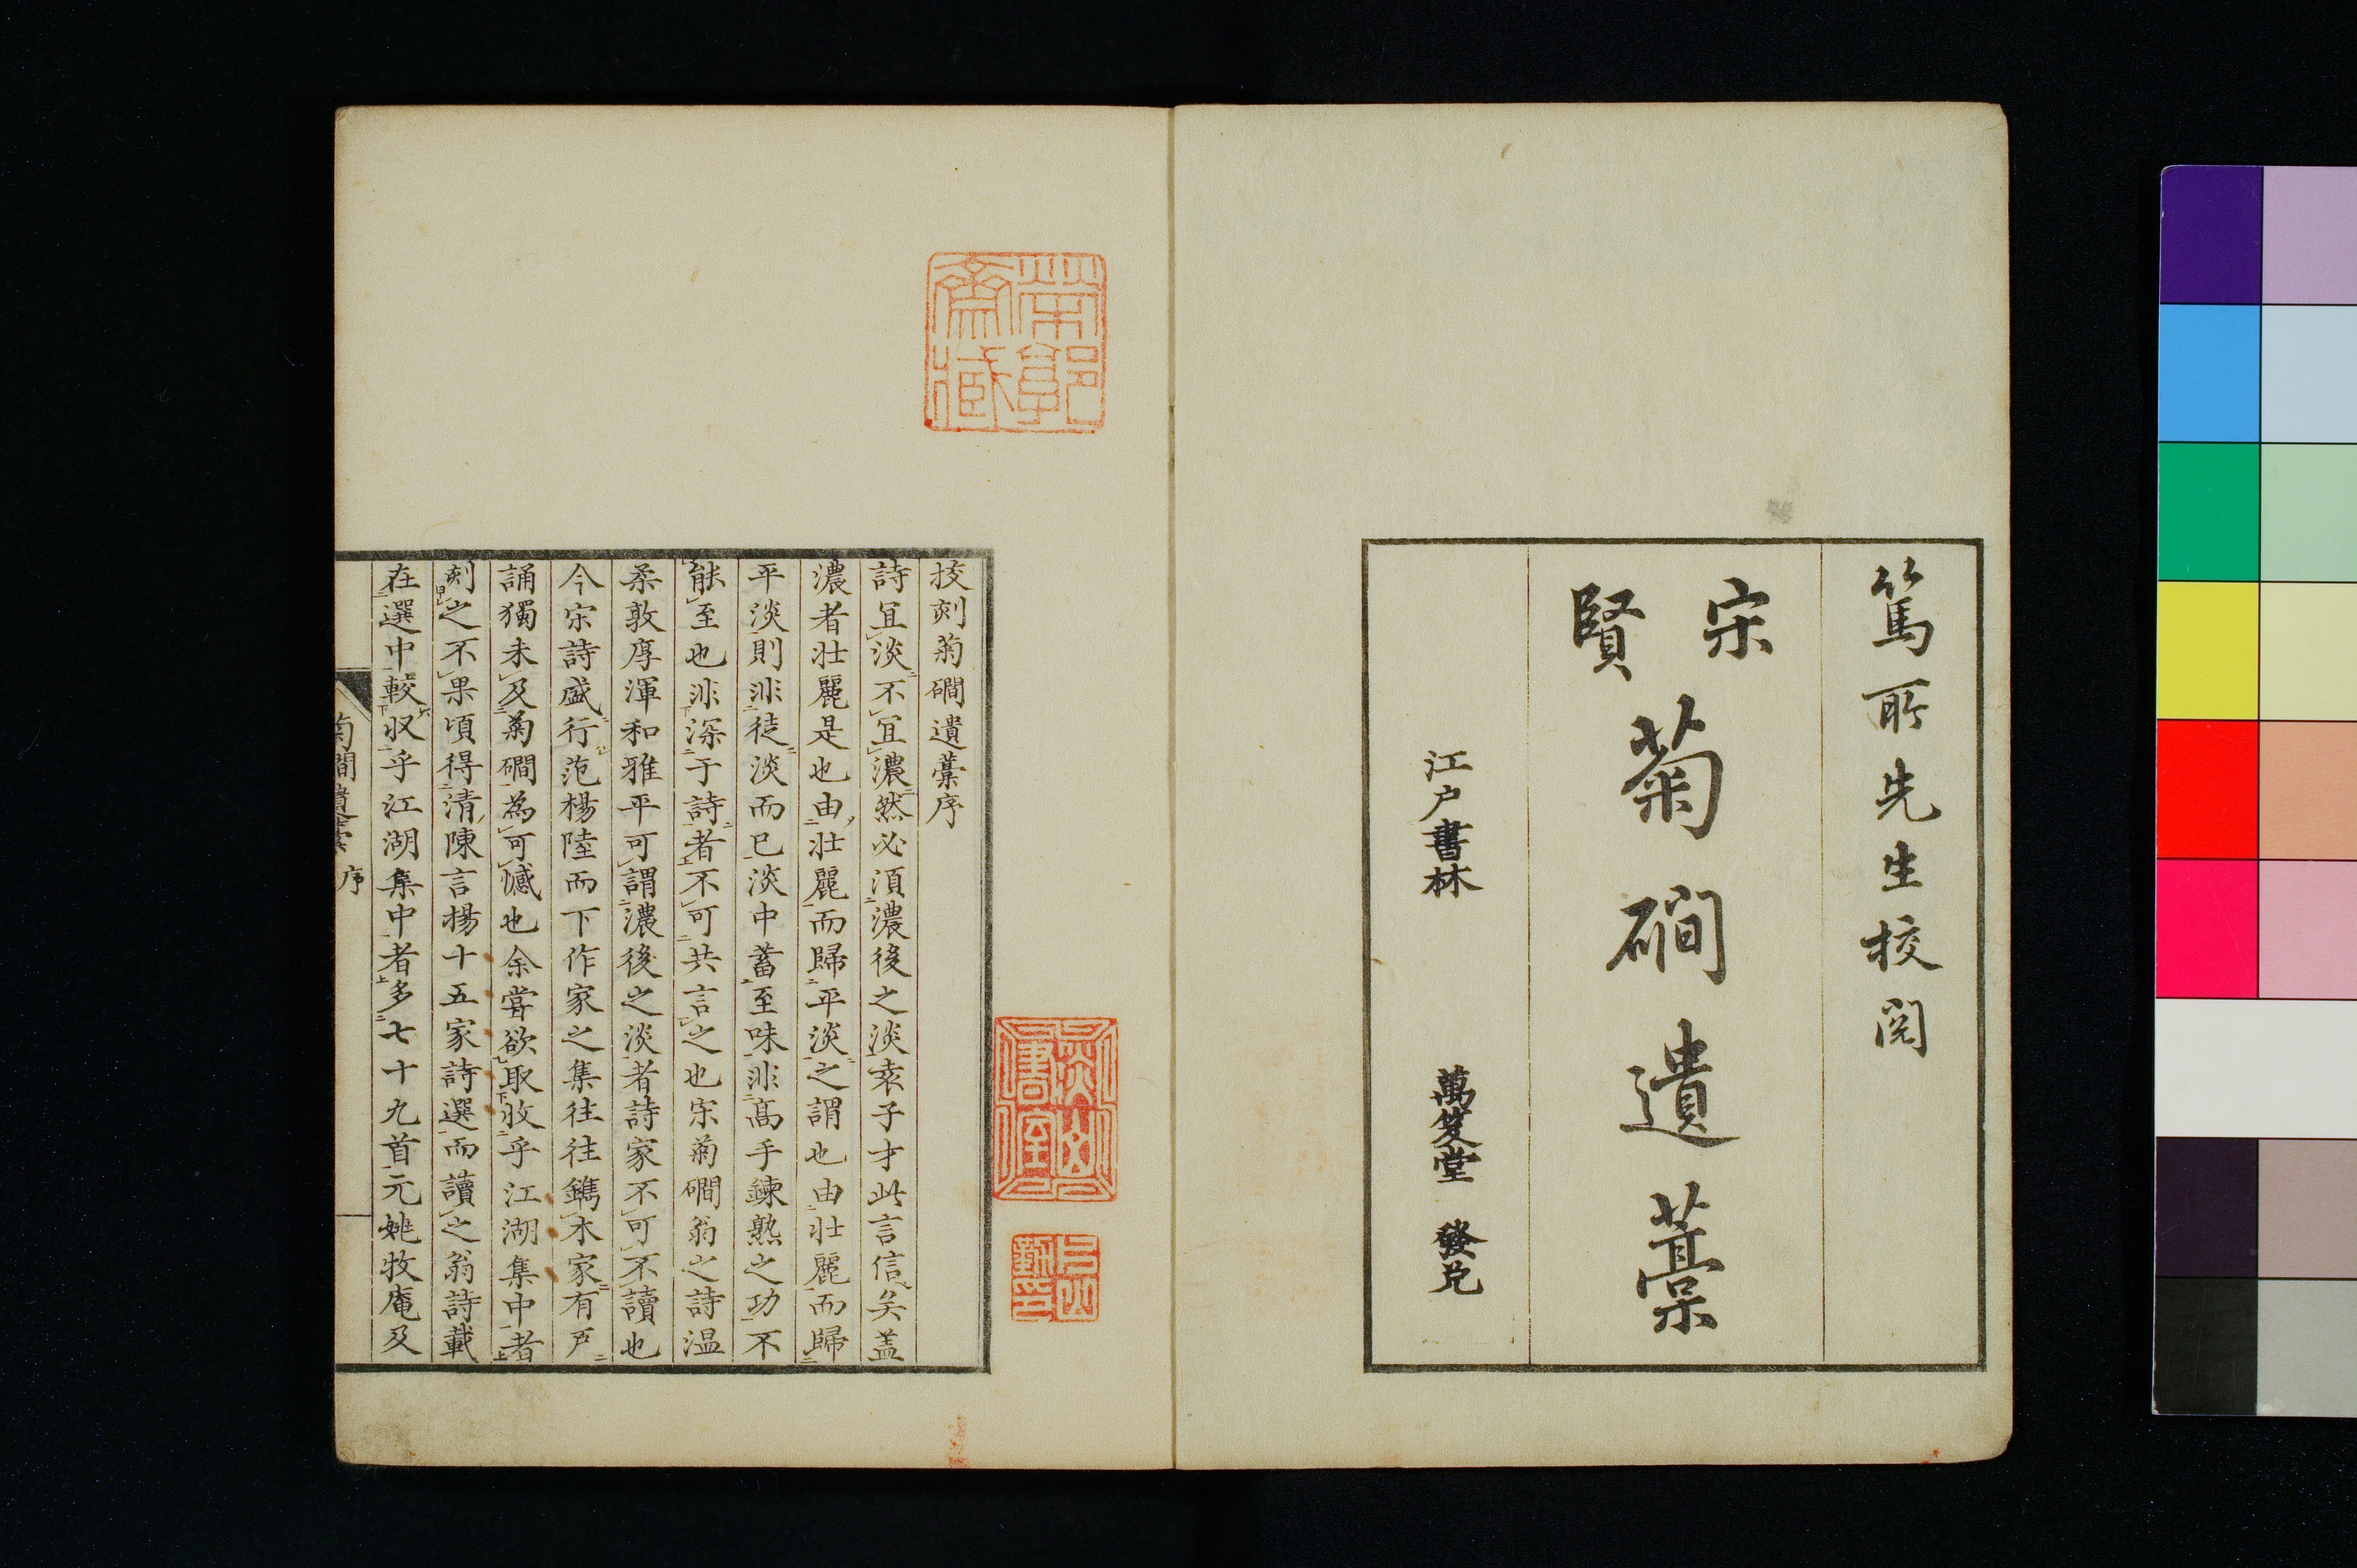 篤所先生校閲
宋賢
菊磵遺藁
江戸書林 萬笈堂 發兌
挍刻菊磵遺藁序
詩冝淡不冝濃然必湏濃後之淡袁子才此言信矣盖
濃者壮麗是也由壮麗而歸平淡之謂也由壮麗而歸
平淡則非徒淡而已淡中蓄至味非髙手鍊熟之功不
能至也非深于詩者不可共言之也宋菊磵翁之詩温
柔敦厚渾和雅平可謂濃後之淡者詩家不可不讀也
今宋詩盛行范楊陸而下作家之集往往鐫木家有戸
誦獨未及菊磵為可憾也余嘗欲取收乎江湖集中者
刻之不果頃得清陳言楊十五家詩選而讀之翁詩載
在選中較収乎江湖集中者多七十九首元姚牧庵及
菊磵遺藁 序